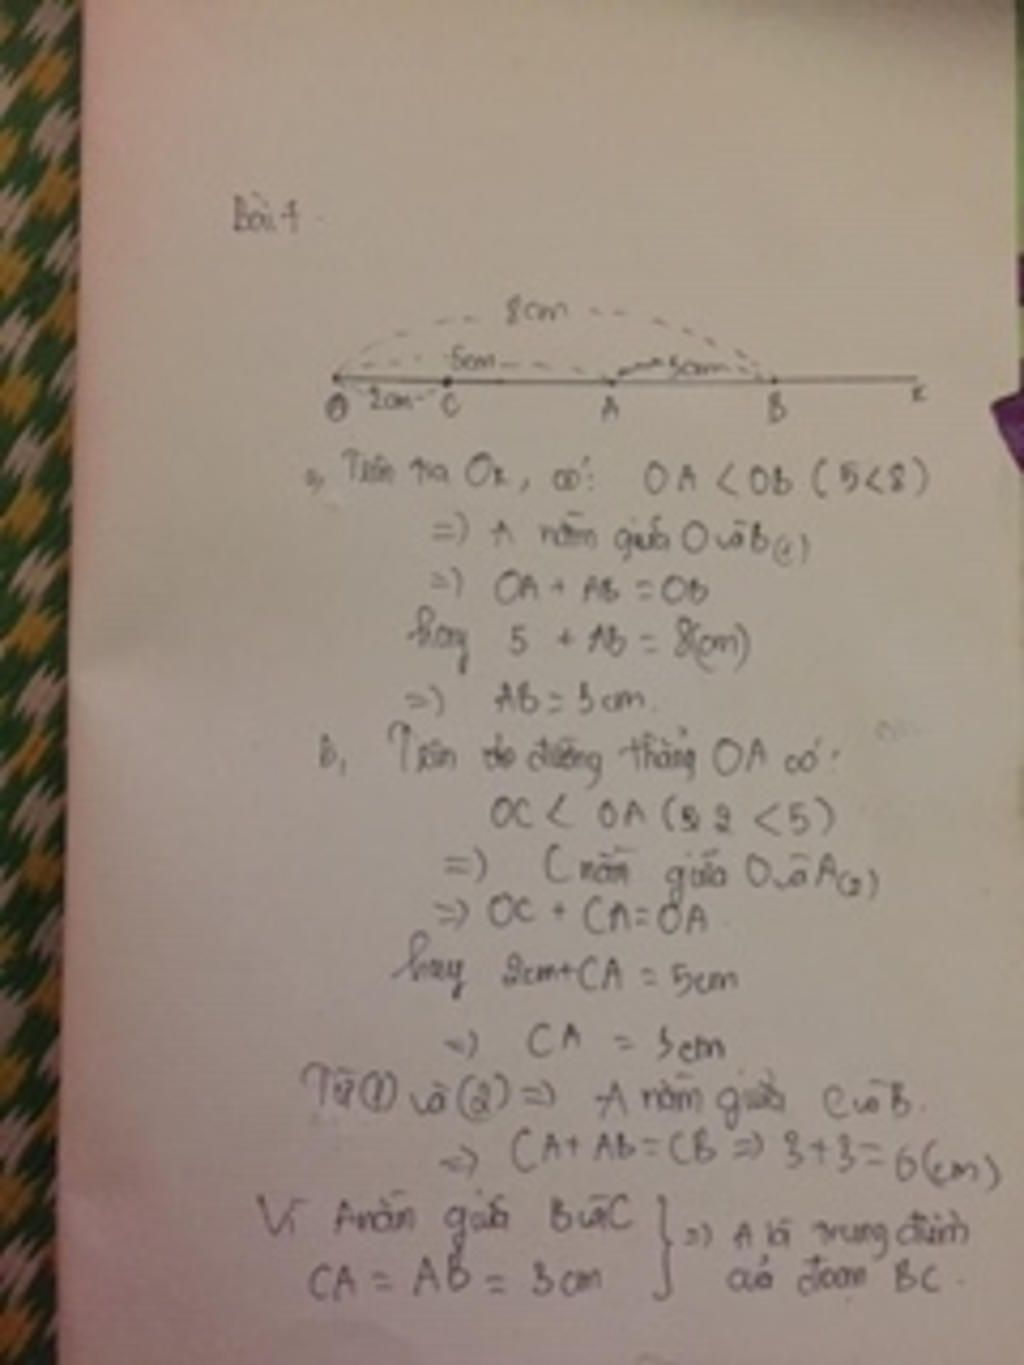 Bài 4
8cm
5cm 3cm
2cm
O C A B x
a, Trên tia Ox, có: OA < OB (5<8)
=> A nằm giữa O và B (1)
=> OA + AB = OB
hay 5 + AB = 8(cm)
=> AB = 3cm.
b, Trên đường thẳng OA có:
OC < OA (2 < 5)
=> C nằm giữa O và A (2)
=> OC + CA = OA
hay 2cm + CA = 5cm
=> CA = 3cm
Từ (1) và (2) => A nằm giữa C và B.
=> CA + AB = CB => 3+3 = 6(cm)
Vì A nằm giữa B và C } => A là trung điểm
CA = AB = 3cm của đoạn BC.